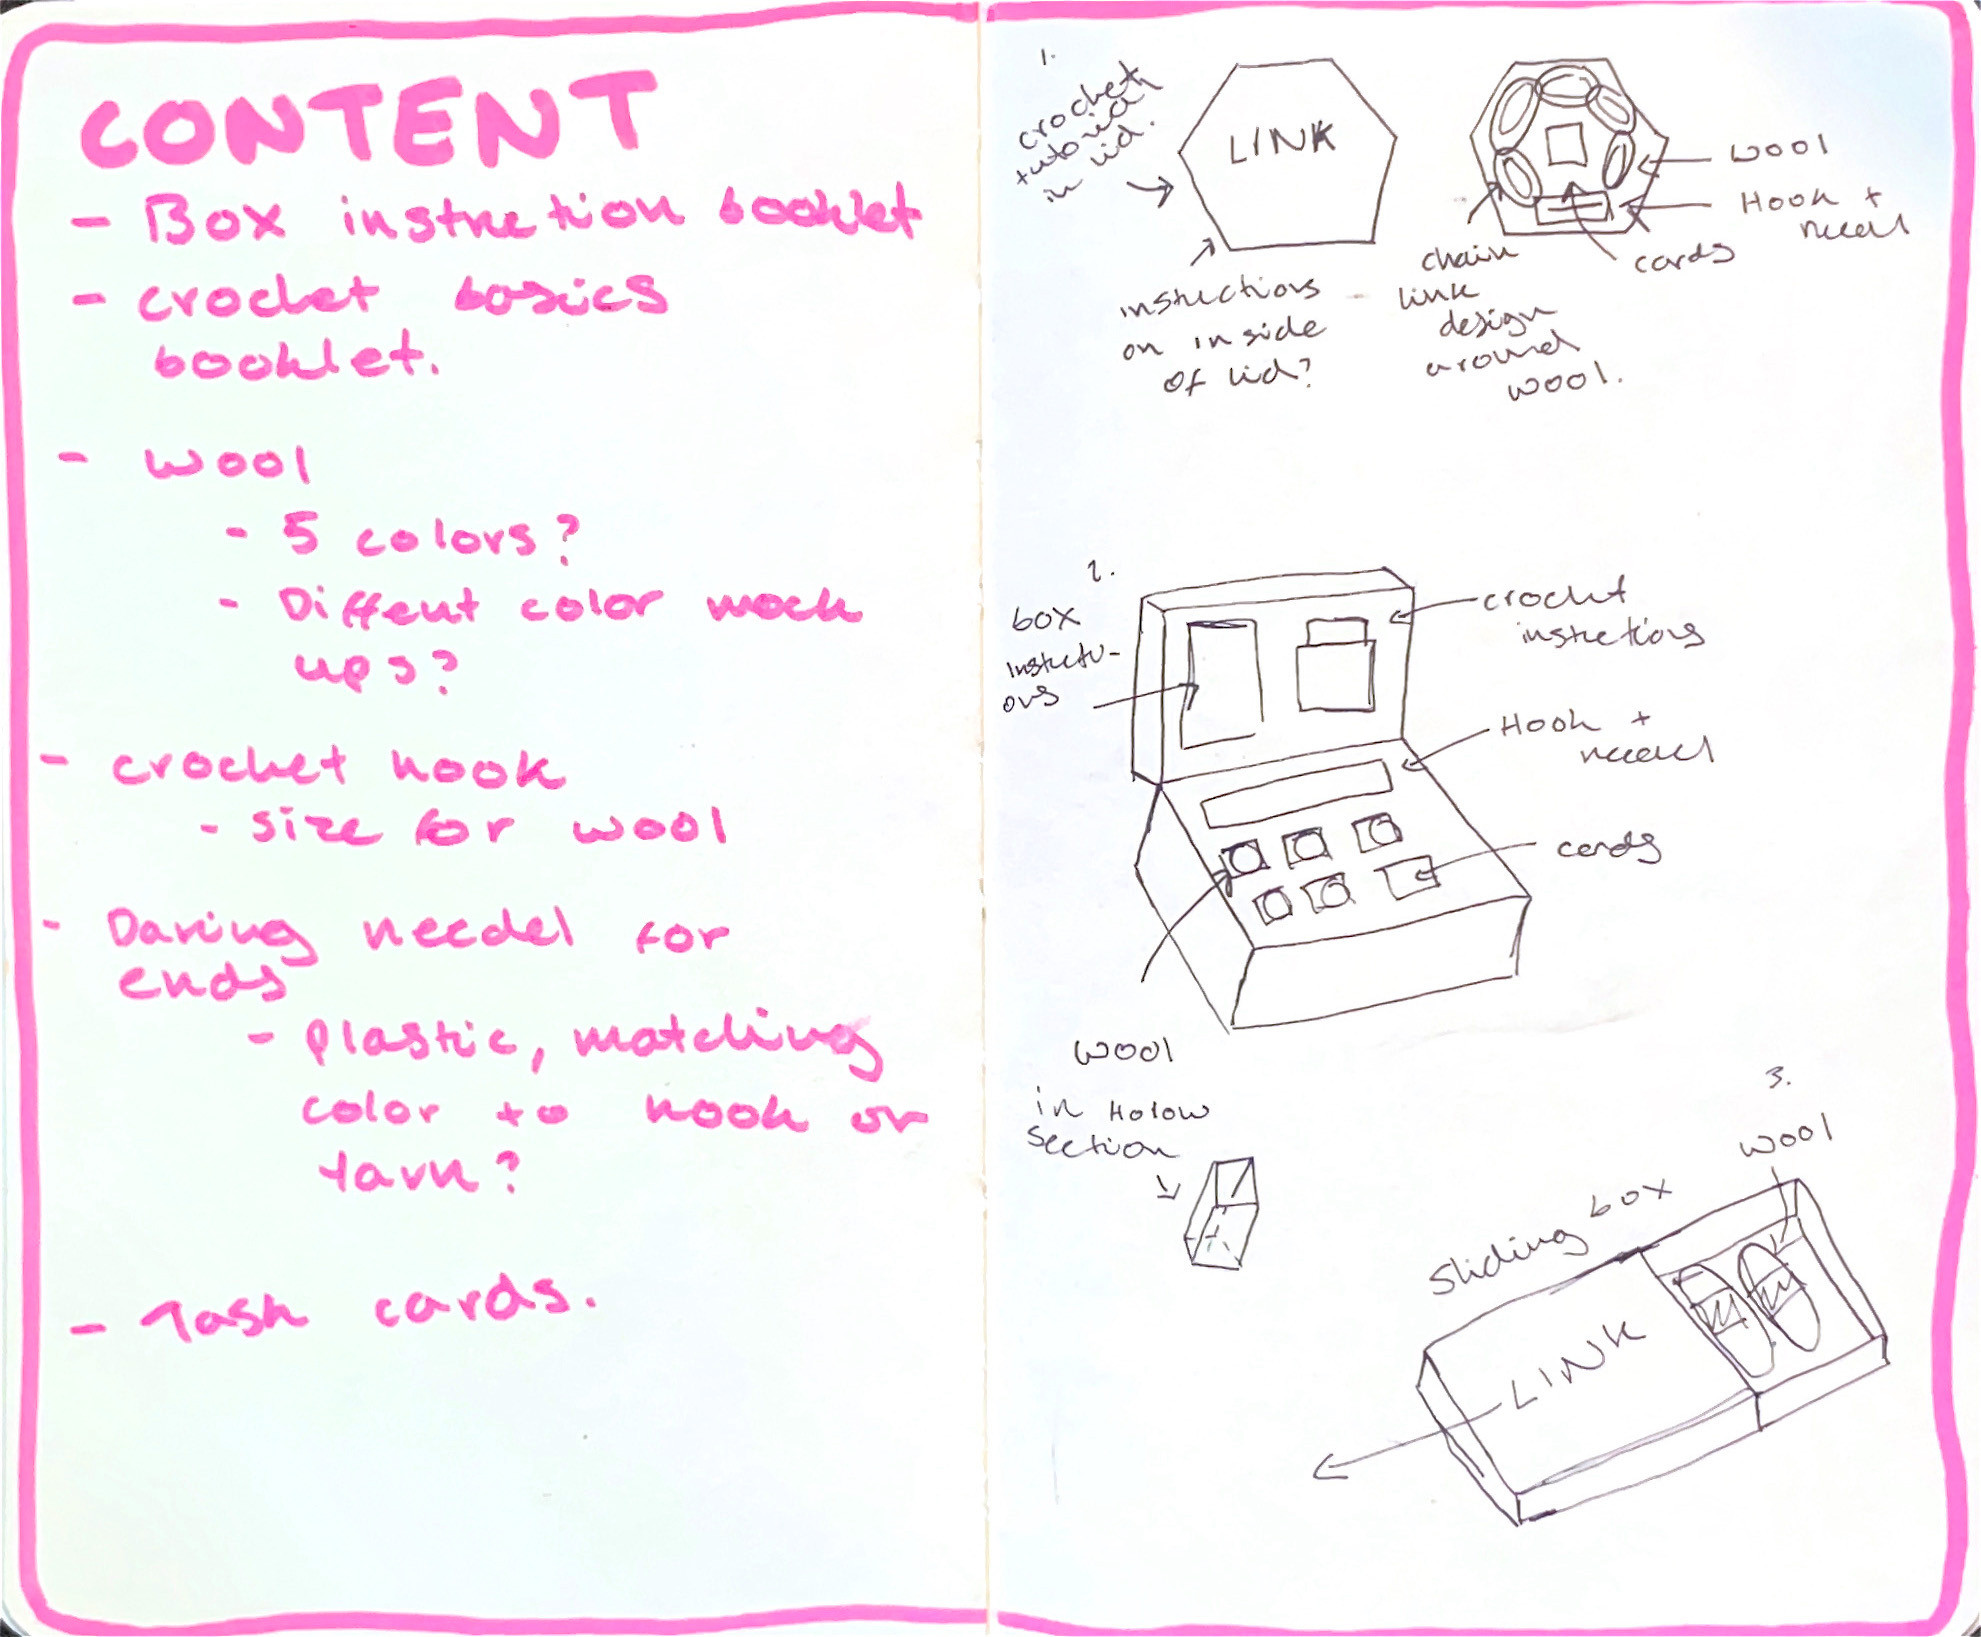 CONTENT
- Box instruction booklet
- crochet basics
booklet.
- wool
- 5 colors?
- Diffent color mock
ups?
- crochet hook
- size for wool
- Daring needel for
ends
- plastic, matching
color to hook or
yarn?
- Task cards.
1.
crochet
tutorial
in lid.
LINK
instructions
on inside
of lid?
wool
Hook +
needl
cards
chain
link
design
around
wool.
2.
box
instructi-
ons
crochet
instructions
Hook +
needl
cards
wool
in Holow
section
3.
wool
Sliding box
LINK